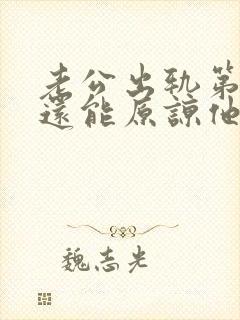 老公出軌第
還能原諒他
魏志光